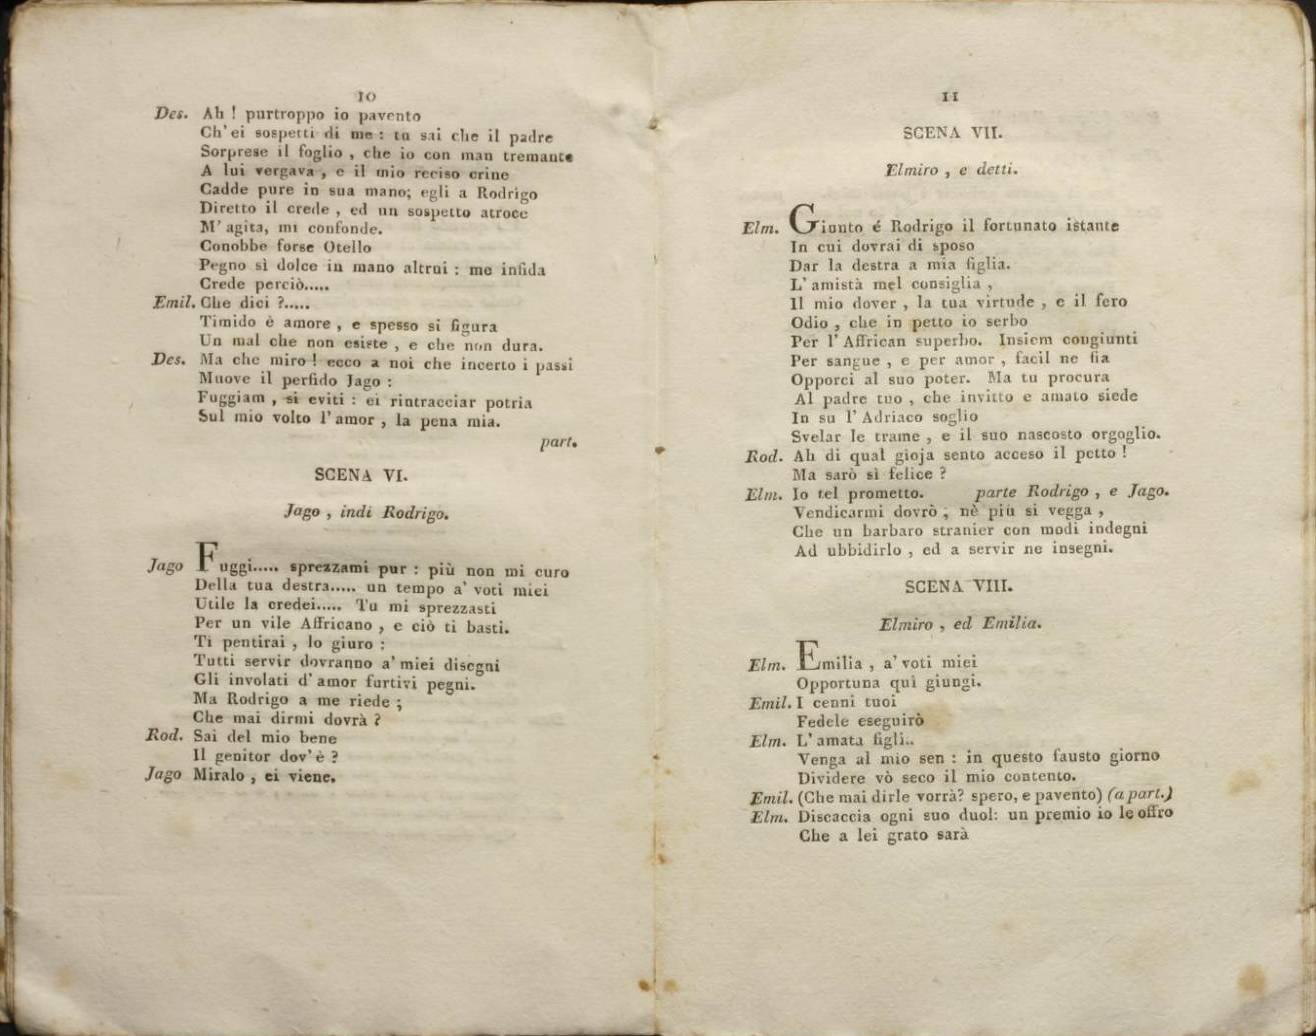 10
Des. Ah ! purtroppo io pavento
Ch' ei sospetti di me : tu sai che il padre
Sorprese il foglio , che io con man tremante
A lui vergava , e il mio reciso crine
Cadde pure in sua mano; egli a Rodrigo
Diretto il crede , ed un sospetto atroce
M' agita, mi confonde.
Conobbe forse Otello
Pegno sì dolce in mano altrui : me infida
Crede perciò.....
Emil. Che dici ?.....
Timido è amore , e spesso si figura
Un mal che non esiste , e che non dura.
Des. Ma che miro ! ecco a noi che incerto i passi
Muove il perfido Jago :
Fuggiam , si eviti : ei rintracciar potria
Sul mio volto l' amor , la pena mia.
part.
SCENA VI.
Jago , indi Rodrigo.
Jago Fuggi..... sprezzami pur : più non mi curo
Della tua destra..... un tempo a' voti miei
Utile la credei..... Tu mi sprezzasti
Per un vile Affricano , e ciò ti basti.
Ti pentirai , lo giuro ;
Tutti servir dovranno a' miei disegni
Gli involati d' amor furtivi pegni.
Ma Rodrigo a me riede ;
Che mai dirmi dovrà ?
Rod. Sai del mio bene
Il genitor dov' è ?
Jago Miralo , ei viene.
11
SCENA VII.
Elmiro , e detti.
Elm. Giunto é Rodrigo il fortunato istante
In cui dovrai di sposo
Dar la destra a mia figlia.
L' amistà mel consiglia ,
Il mio dover , la tua virtude , e il fero
Odio , che in petto io serbo
Per l' Affrican superbo. Insiem congiunti
Per sangue , e per amor , facil ne fia
Opporci al suo poter. Ma tu procura
Al padre tuo , che invitto e amato siede
In su l' Adriaco soglio
Svelar le trame , e il suo nascosto orgoglio.
Rod. Ah di qual gioja sento acceso il petto !
Ma sarò sì felice ?
Elm. Io tel prometto. parte Rodrigo , e Jago.
Vendicarmi dovrò ; nè più si vegga ,
Che un barbaro stranier con modi indegni
Ad ubbidirlo , ed a servir ne insegni.
SCENA VIII.
Elmiro , ed Emilia.
Elm. Emilia , a' voti miei
Opportuna quì giungi.
Emil. I cenni tuoi
Fedele eseguirò
Elm. L' amata figli..
Venga al mio sen : in questo fausto giorno
Dividere vò seco il mio contento.
Emil. (Che mai dirle vorrà? spero, e pavento) (a part.)
Elm. Discaccia ogni suo duol: un premio io le offro
Che a lei grato sarà